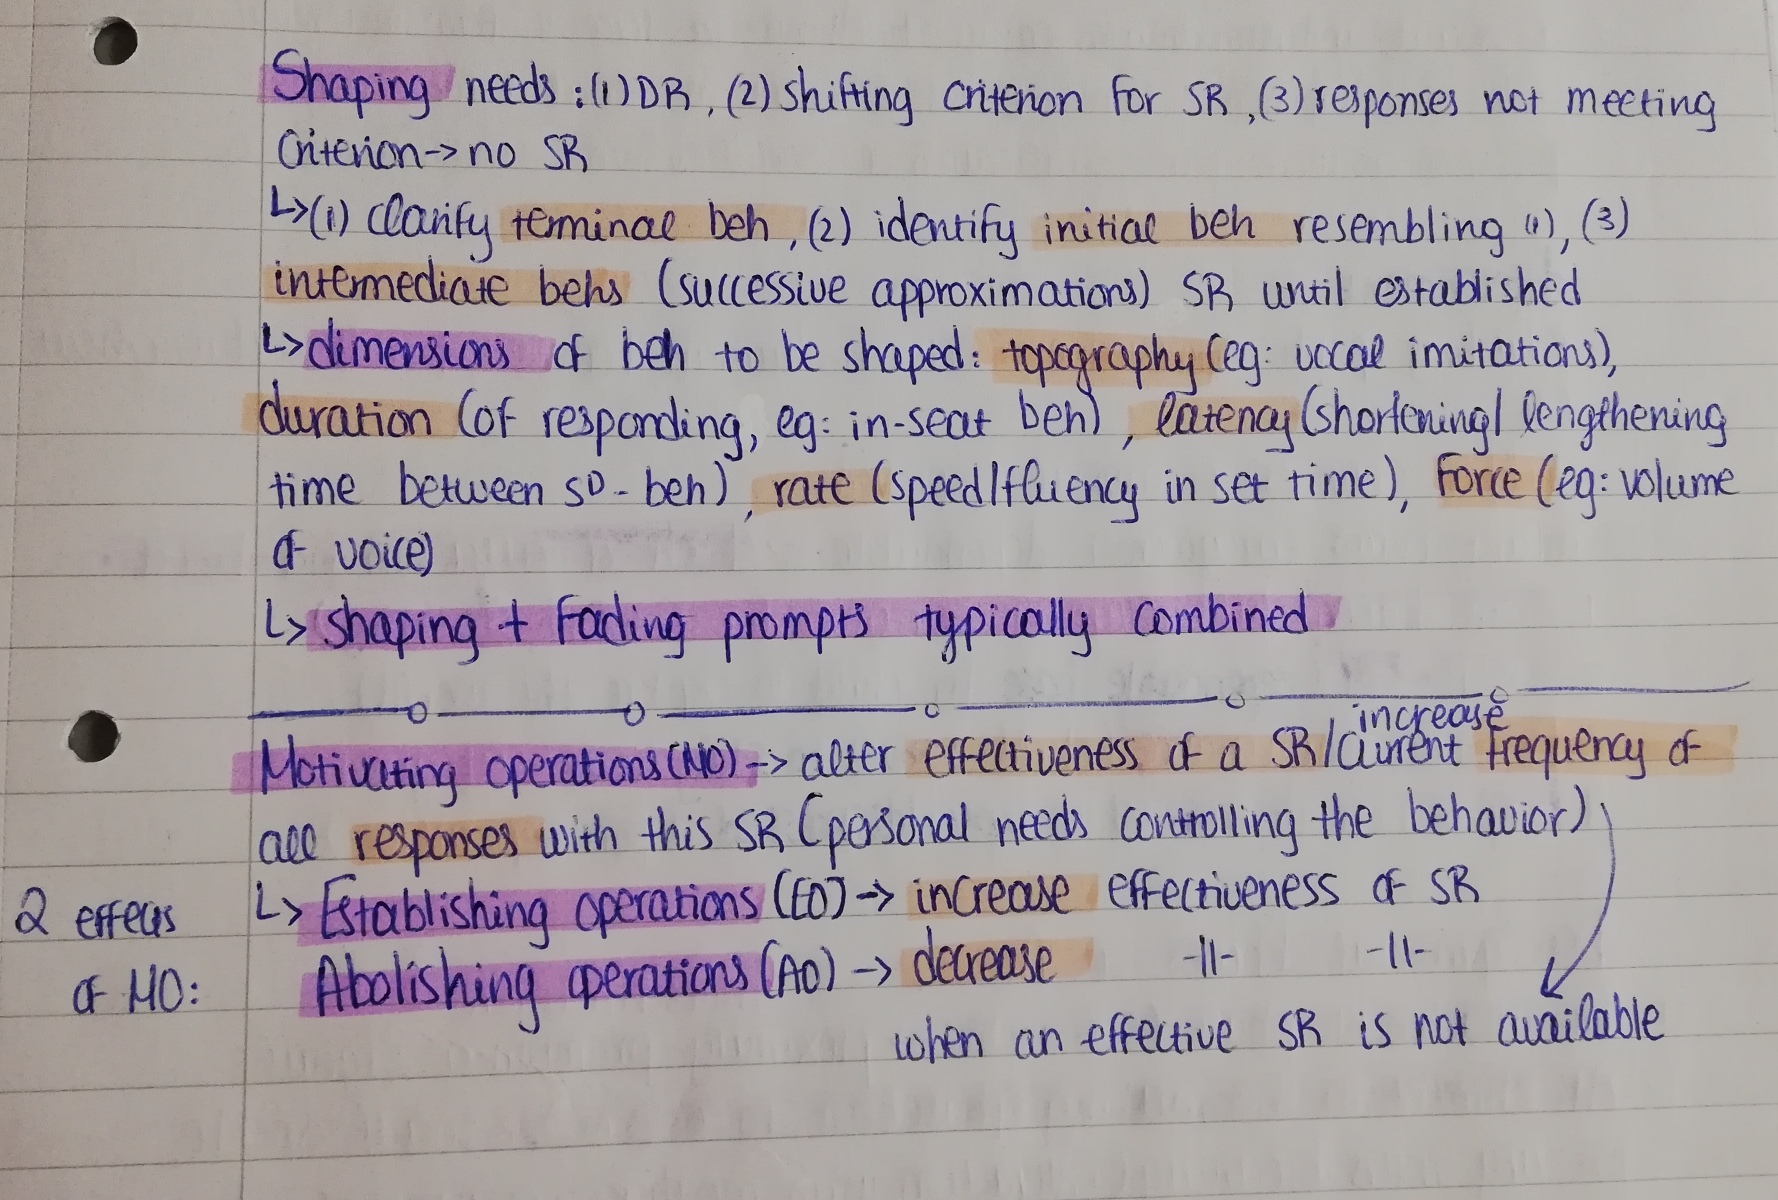 Shaping needs: (1) DR, (2) shifting criterion for SR, (3) responses not meeting
criterion → no SR
↳(1) clarify terminal beh, (2) identify initial beh resembling (1), (3)
intermediate behs (successive approximations) SR until established
↳dimensions of beh to be shaped: topography (eg: vocal imitations),
duration (of responding, eg: in-seat beh), latency (shortening/lengthening
time between SD - beh), rate (speed/fluency in set time), force (eg: volume
of voice)
↳ shaping + fading prompts typically combined
increase
Motivating operations (MO) → alter effectiveness of a SR/current frequency of
all responses with this SR (personal needs controlling the behavior)
2 effects ↳ Establishing operations (EO) → increase effectiveness of SR
of MO: Abolishing operations (AO) → decrease -||- -||-
when an effective SR is not available